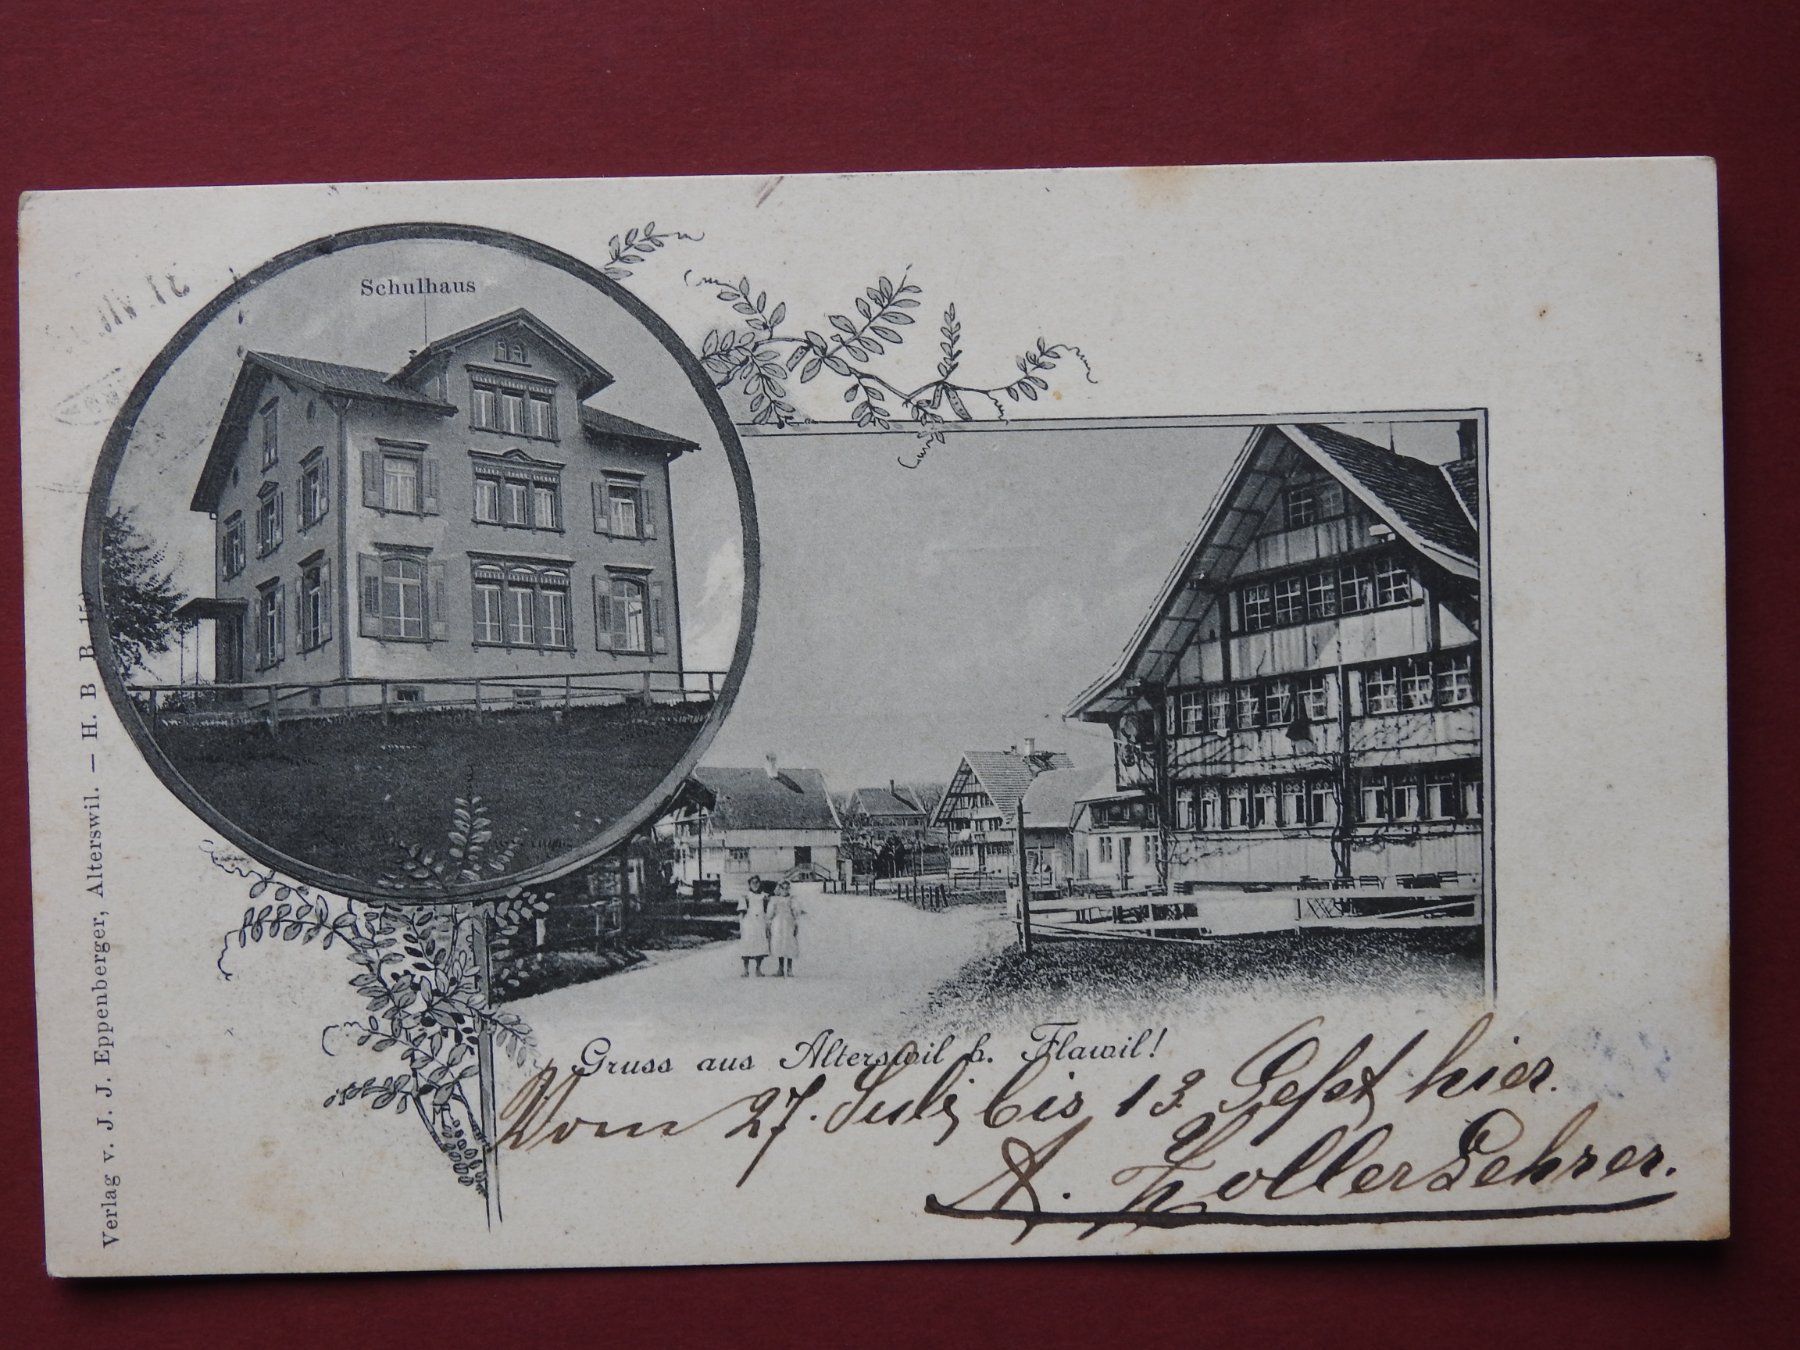 Schulhaus
Gruss aus Alterswil b. Flawil!
Vom 27. Juli bis 13. Sept hier.
A. Zoller Lehrer.
Verlag v. J. J. Eppenberger, Alterswil. — H. B. B.